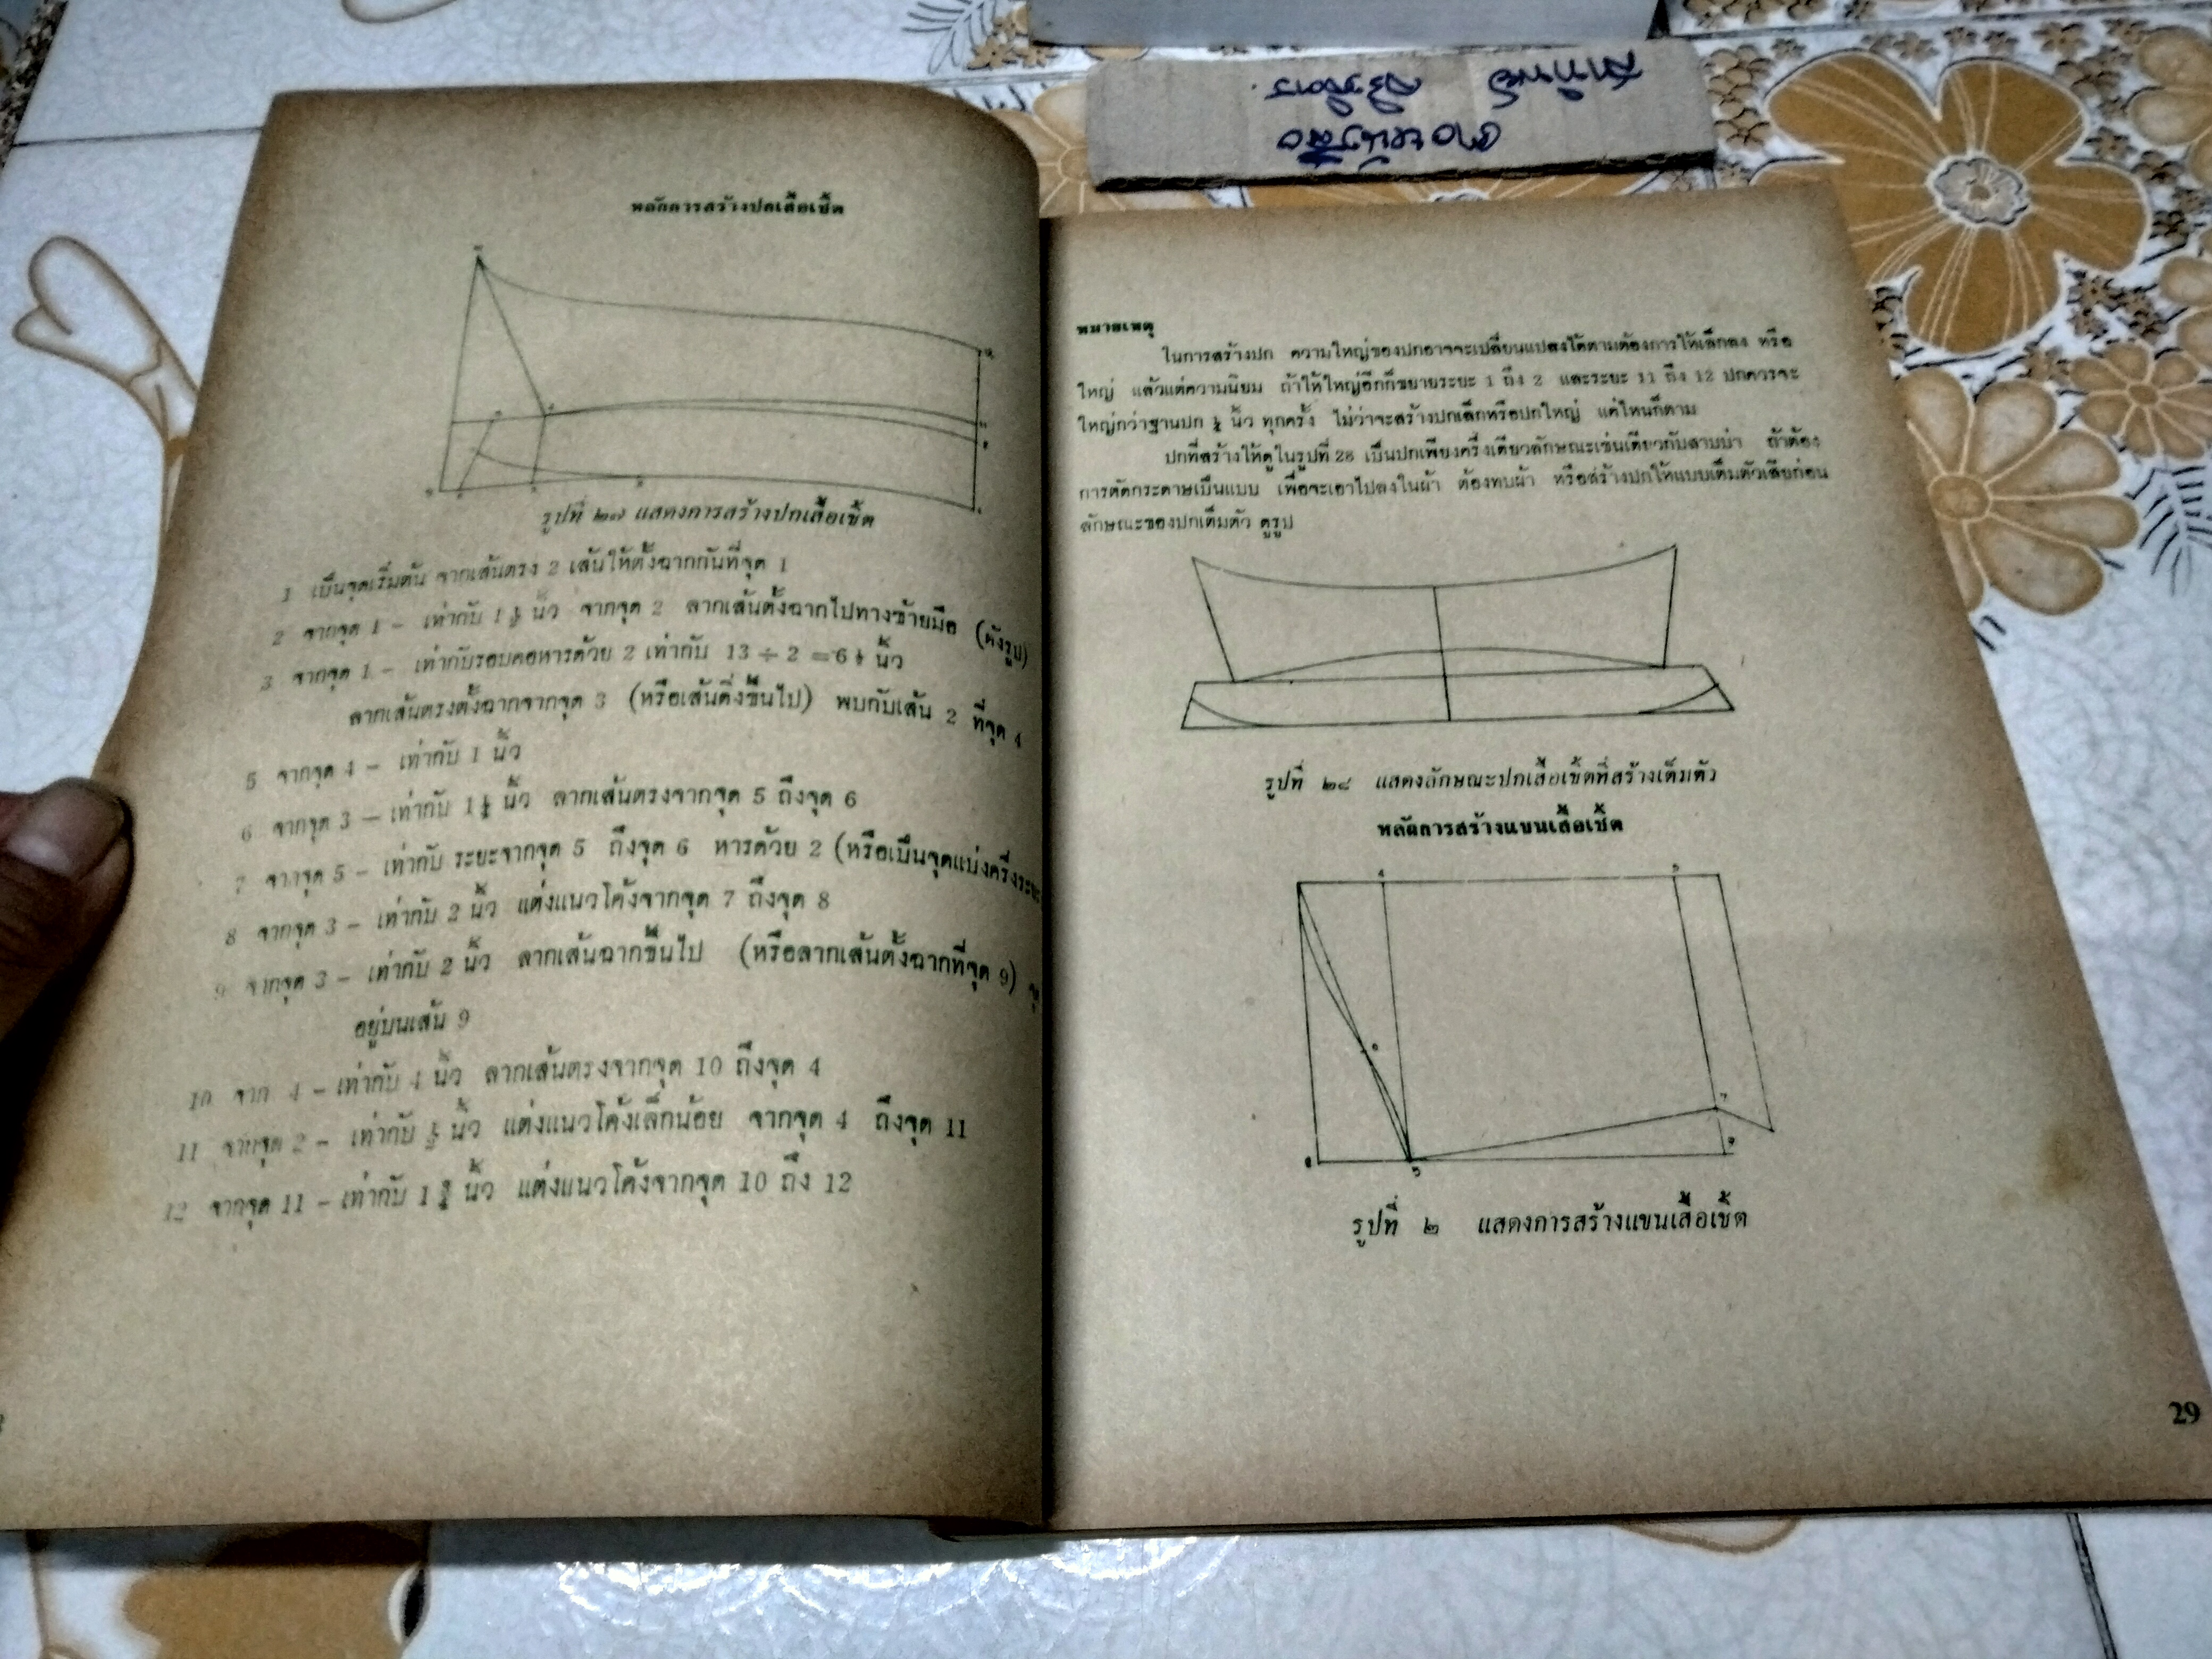 หลักการสร้างปกเสื้อเชิ้ต
รูปที่ ๒๗ แสดงการสร้างปกเสื้อเชิ้ต
1 เป็นจุดเริ่มต้น จากเส้นตรง 2 เส้นให้ตั้งฉากกันที่จุด 1
2 จากจุด 1 - เท่ากับ 1 นิ้ว จากจุด 2 ลากเส้นตั้งฉากไปทางซ้ายมือ (ดังรูป)
3 จากจุด 1 - เท่ากับรอบคอหารด้วย 2 เท่ากับ 13 ÷ 2 = 6 ½ นิ้ว
ลากเส้นตรงตั้งฉากจากจุด 3 (หรือเส้นดิ่งขึ้นไป) พบกับเส้น 2 ที่จุด 4
5 จากจุด 4 - เท่ากับ 1 นิ้ว
6 จากจุด 3 - เท่ากับ 1 นิ้ว ลากเส้นตรงจากจุด 5 ถึงจุด 6
7 จากจุด 5 - เท่ากับ ระยะจากจุด 5 ถึงจุด 6 หารด้วย 2 (หรือเป็นจุดแบ่งครึ่งระยะ
8 จากจุด 3 - เท่ากับ 2 นิ้ว แต่งแนวโค้งจากจุด 7 ถึงจุด 8
9 จากจุด 3 - เท่ากับ 2 นิ้ว ลากเส้นฉากขึ้นไป (หรือลากเส้นตั้งฉากที่จุด 9)
อยู่บนเส้น 9
10 จาก 4 - เท่ากับ 4 นิ้ว ลากเส้นตรงจากจุด 10 ถึงจุด 4
11 จากจุด 2 - เท่ากับ นิ้ว แต่งแนวโค้งเล็กน้อย จากจุด 4 ถึงจุด 11
12 จากจุด 11 - เท่ากับ 1 นิ้ว แต่งแนวโค้งจากจุด 10 ถึง 12
หมายเหตุ
ในการสร้างปก ความใหญ่ของปกอาจจะเปลี่ยนแปลงได้ตามต้องการให้เล็กลง หรือ
ใหญ่ แล้วแต่ความนิยม ถ้าให้ใหญ่อีกก็ขยายระยะ 1 ถึง 2 และระยะ 11 ถึง 12 ปกควรจะ
ใหญ่กว่าฐานปก นิ้ว ทุกครั้ง ไม่ว่าจะสร้างปกเล็กหรือปกใหญ่ แค่ไหนก็ตาม
ปกที่สร้างให้ดูในรูปที่ 28 เป็นปกเพียงครึ่งเดียวลักษณะเช่นเดียวกับสาบบ่า ถ้าต้อง
การตัดกระดาษเป็นแบบ เพื่อจะเอาไปลงในผ้า ต้องทบผ้า หรือสร้างปกให้แบบเต็มตัวเสียก่อน
ลักษณะของปกเต็มตัว ดูรูป
รูปที่ ๒๘ แสดงลักษณะปกเสื้อเชิ้ตที่สร้างเต็มตัว
หลักการสร้างแขนเสื้อเชิ้ต
รูปที่ ๒ แสดงการสร้างแขนเสื้อเชิ้ต
29